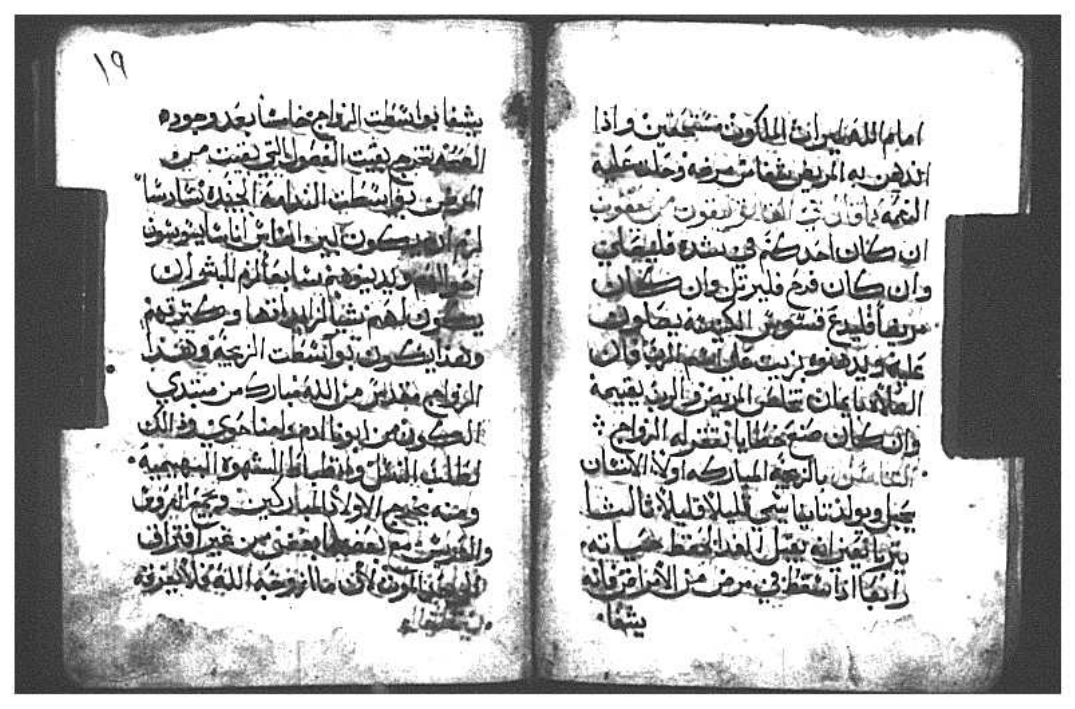 امام الله ميراث الملكوت مستحقين واذا
اندهن به المريض شفا من مرضه وحلت عليه
النعمه يعقوب
ان كان احد كم في شده فليصلي
وان كان فرح فليرتل وان كان
مريضا فليدع قسوس الكنيسه يصلون
عليه ويدهنوه بزيت على اسم الرب فان
الصلاه بايمان تخلص المريض والرب يقيمه
وان كان صنع خطايا تغتفر له الزواج
بالزيجه المباركه اولا الانسان
يحبل ويولد ثانيا شي قليلا قليلا ثالثا
يتربا يعني انه يقبل الغدا لحفظ حياته
رابعا اذا سقط في مرض من الامراض فانه
يشفا
١٩
يشفا بواسطت الزواج خامسا بعد وجوده
الصحه تخرج بقيت الفضول التي بقيت من
المرض بواسطت الندامه الجيده سادسا
لزم انه يكون بين الناس اناسا يسوسون
سابعا لزم للبشر ان
يكون لهم نشيا لزايدانها وكثرتهم
وهذا يكون بواسطت الزيجه وهذا
الزواج مقدس من الله مبارك من مبتدي
الكون من ابونا ادم وامنا حوي وذالك
لطلب النسل ولانظباط الشهوه البهيميه
ومنه يخرج الاولاد المباركين ويجمع العروس
والعريس مع بعضهما بعض من غير افتراق
لان ما ازوجه الله فلا يفرقه